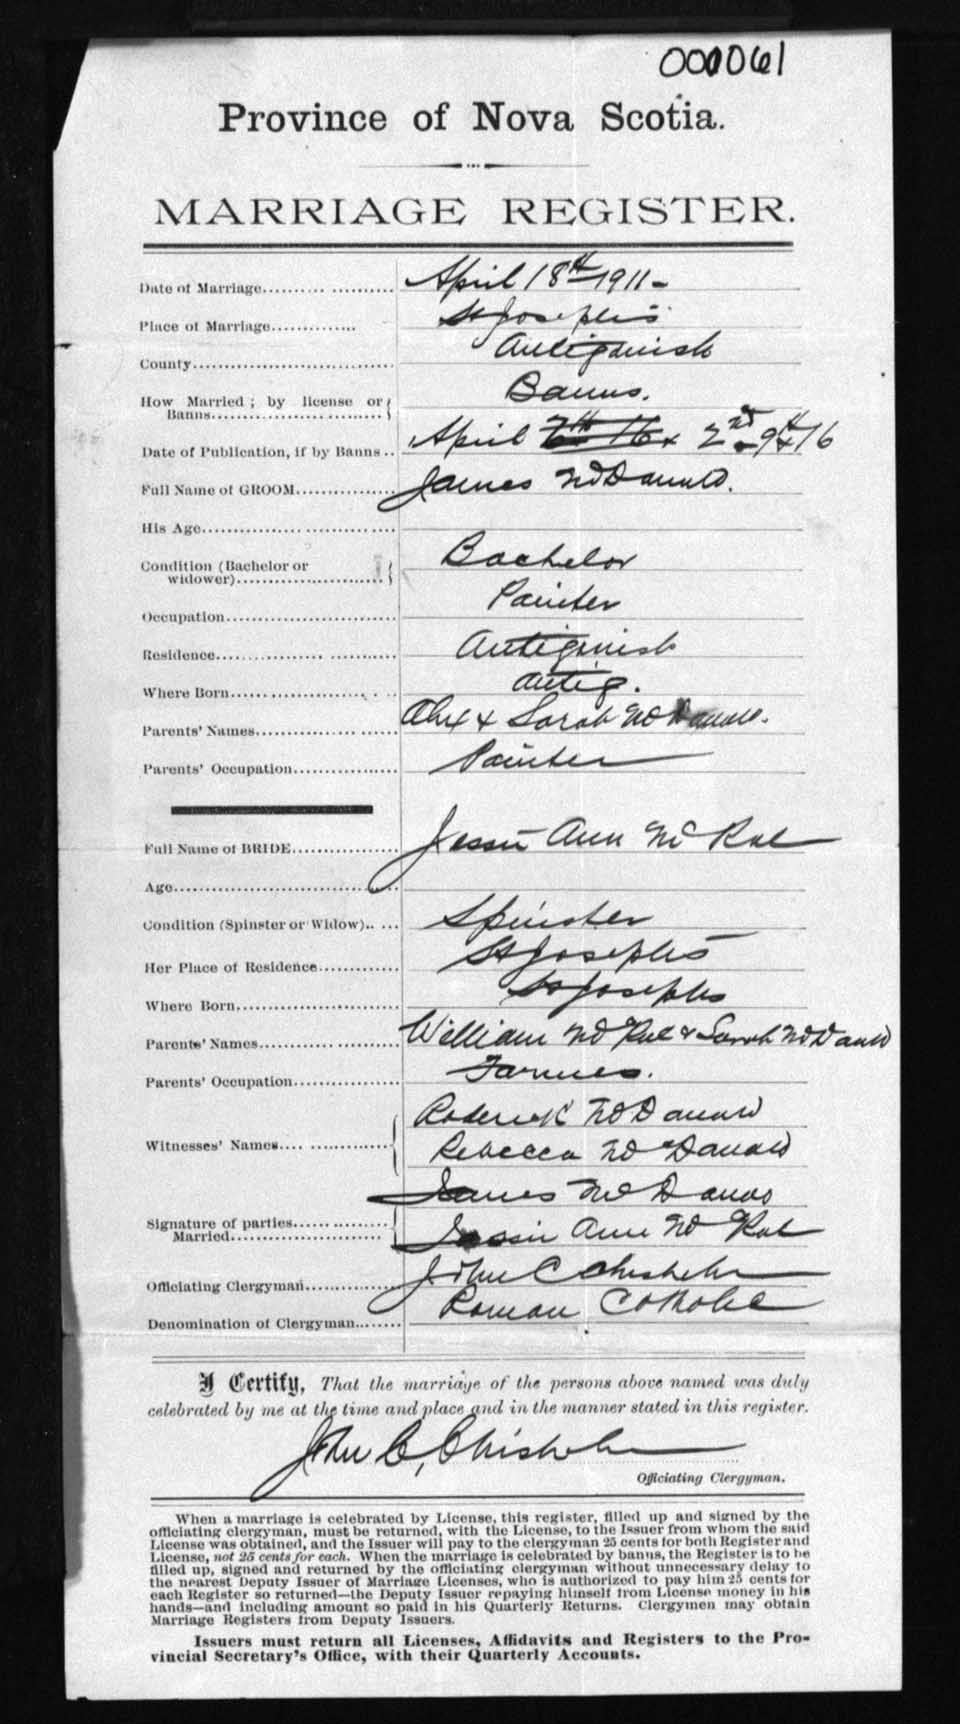 000061
Province of Nova Scotia.
MARRIAGE REGISTER.
Date of Marriage.......... April 18th 1911-
Place of Marriage............. St Josephs
County............................... Antigonish
How Married; by license or Banns............................ Banns.
Date of Publication, if by Banns.. April 7th 16 x 2nd 9th & 16
Full Name of GROOM............... James McDonald.
His Age.............................
Condition (Bachelor or widower)...................... Bachelor
Occupation.......................... Painter
Residence........................... Antigonish
Where Born......................... Antig.
Parents' Names.................... Alex & Sarah McDonald.
Parents' Occupation................ Painter
Full Name of BRIDE............... Jessie Ann McRae
Age..................................
Condition (Spinster or Widow)..... Spinster
Her Place of Residence............ St Josephs
Where Born....................... St Josephs
Parents' Names.................... William McRae & Sarah McDonald
Parents' Occupation................ Farmer.
Witnesses' Names.................. Roderick McDonald
Rebecca McDonald
Signature of parties Married...................... James McDonald
Jessie Ann McRae
Officiating Clergyman.............. John C Chisholm
Denomination of Clergyman........ Roman Catholic
I Certify, That the marriage of the persons above named was duly
celebrated by me at the time and place and in the manner stated in this register.
John C. Chisholm
Officiating Clergyman.
When a marriage is celebrated by License, this register, filled up and signed by the
officiating clergyman, must be returned, with the License, to the Issuer from whom the said
License was obtained, and the Issuer will pay to the clergyman 25 cents for both Register and
License, not 25 cents for each. When the marriage is celebrated by banns, the Register is to be
filled up, signed and returned by the officiating clergyman without unnecessary delay to
the nearest Deputy Issuer of Marriage Licenses, who is authorized to pay him 25 cents for
each Register so returned—the Deputy Issuer repaying himself from License money in his
hands—and including amount so paid in his Quarterly Returns. Clergymen may obtain
Marriage Registers from Deputy Issuers.
Issuers must return all Licenses, Affidavits and Registers to the Pro-
vincial Secretary's Office, with their Quarterly Accounts.